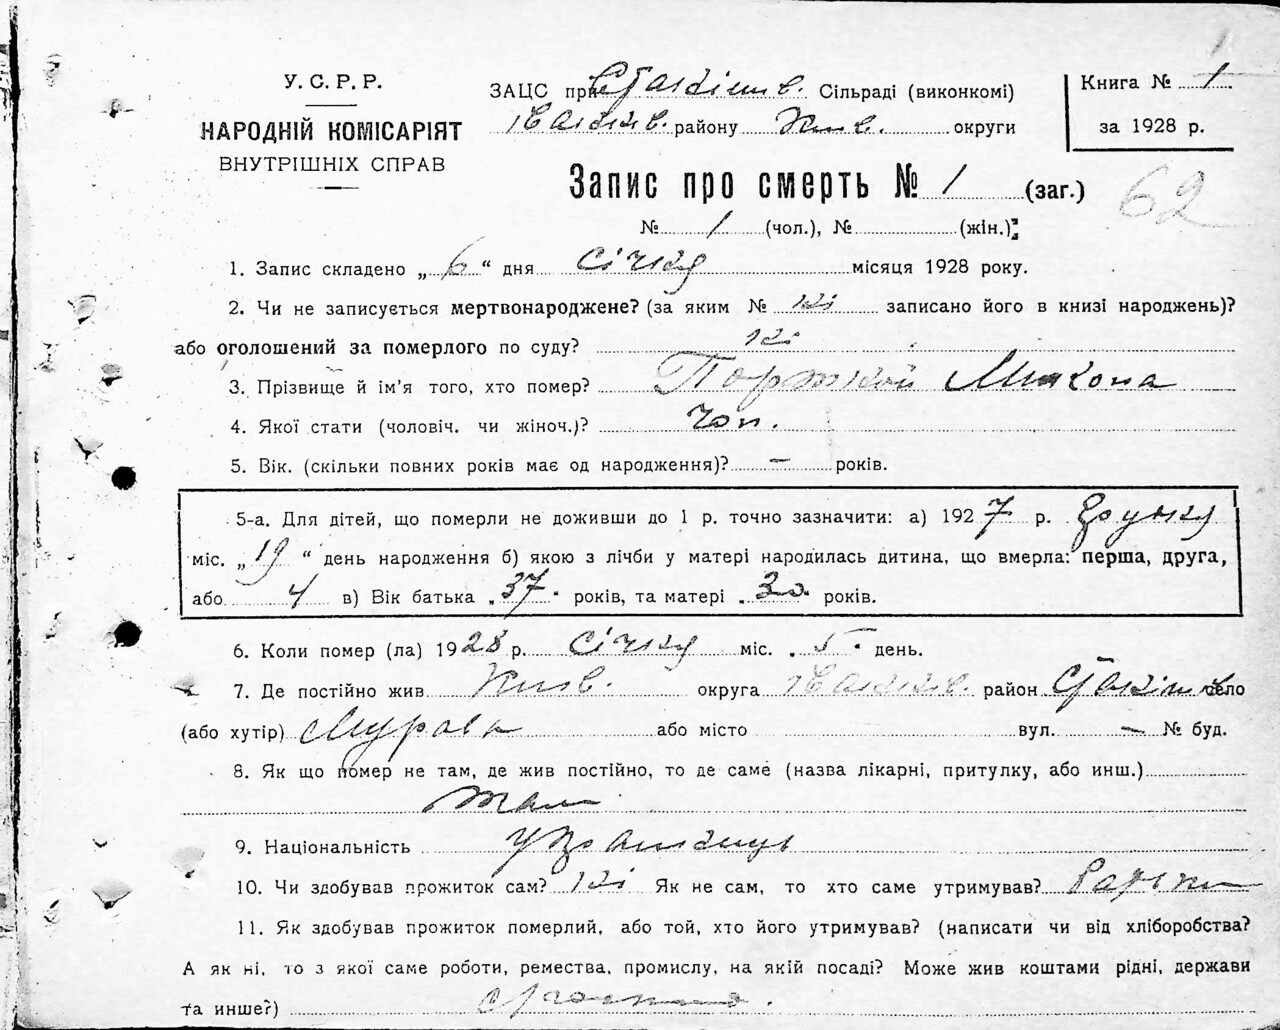 У.С.Р.Р.
НАРОДНІЙ КОМІСАРІЯТ
ВНУТРІШНІХ СПРАВ
ЗАЦС при Сільраді (виконкомі)
району Київ. округи
Книга № 1
за 1928 р.
Запис про смерть № 1 (заг.)
62
№ 1 (чол.), № (жін.)
1. Запис складено „ 6 “ дня січня місяця 1928 року.
2. Чи не записується мертвонароджене? (за яким № ні записано його в книзі народжень)?
або оголошений за померлого по суду? ні
3. Прізвище й ім'я того, хто помер? Микола
4. Якої стати (чоловіч. чи жіноч.)? чол.
5. Вік. (скільки повних років має од народження)? — років.
5-а. Для дітей, що померли не доживши до 1 р. точно зазначити: а) 1927 р. грудня
міс. „ 19 “ день народження б) якою з лічби у матері народилась дитина, що вмерла: перша, друга,
або 4 в) Вік батька „ 37 “ років, та матері „ 30 “ років.
6. Коли помер (ла) 1928 р. січня міс. „ 5 “ день.
7. Де постійно жив Київ. округа район село
(або хутір) або місто вул. — № буд.
8. Як що помер не там, де жив постійно, то де саме (назва лікарні, притулку, або инш.)
там
9. Національність українець
10. Чи здобував прожиток сам? ні Як не сам, то хто саме утримував?
11. Як здобував прожиток померлий, або той, хто його утримував? (написати чи від хліборобства?
А як ні, то з якої саме роботи, ремества, промислу, на якій посаді? Може жив коштами рідні, держави
та инше?)